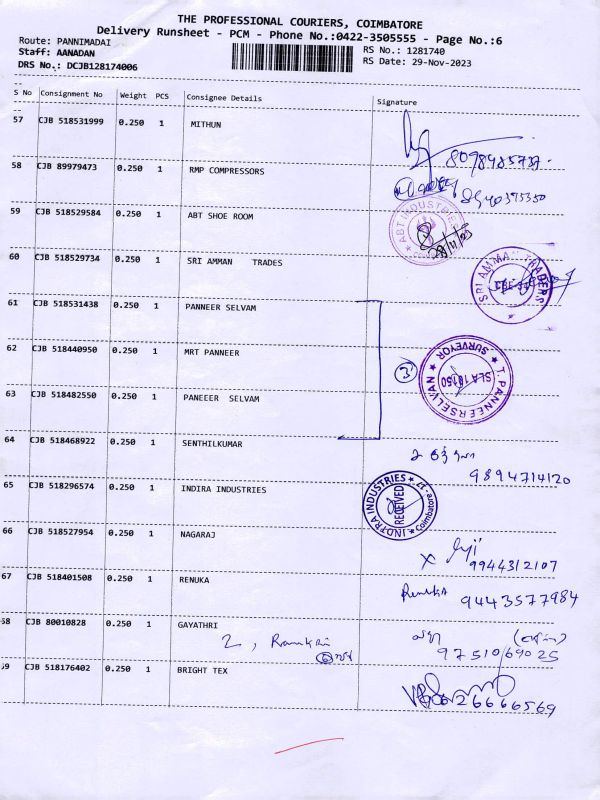 THE PROFESSIONAL COURIERS, COIMBATORE
Delivery Runsheet - PCM - Phone No.:0422-3505555 - Page No.:6
Route: PANNIMADAI
RS No.: 1281740
Staff: AANADAN
RS Date: 29-Nov-2023
DRS No.: DCJB128174006
S No Consignment No Weight PCS Consignee Details Signature
57 CJB 518531999 0.250 1 MITHUN
58 CJB 89979473 0.250 1 RMP COMPRESSORS
59 CJB 518529584 0.250 1 ABT SHOE ROOM
ABT INDUSTRIES
60 CJB 518529734 0.250 1 SRI AMMAN TRADES
SRI AMMAN TRADERS
61 CJB 518531438 0.250 1 PANNEER SELVAM
62 CJB 518440950 0.250 1 MRT PANNEER
3
T. PANNEERSELVAN
SURVEYOR
63 CJB 518482550 0.250 1 PANEEER SELVAM
64 CJB 518468922 0.250 1 SENTHILKUMAR
9894714120
65 CJB 518296574 0.250 1 INDIRA INDUSTRIES
INDIRA INDUSTRIES
RECEIVED
Coimbatore - 17
66 CJB 518527954 0.250 1 NAGARAJ
X
9944312107
67 CJB 518401508 0.250 1 RENUKA
Renuka 9443577984
68 CJB 80010828 0.250 1 GAYATHRI
2,
9751069025
69 CJB 518176402 0.250 1 BRIGHT TEX